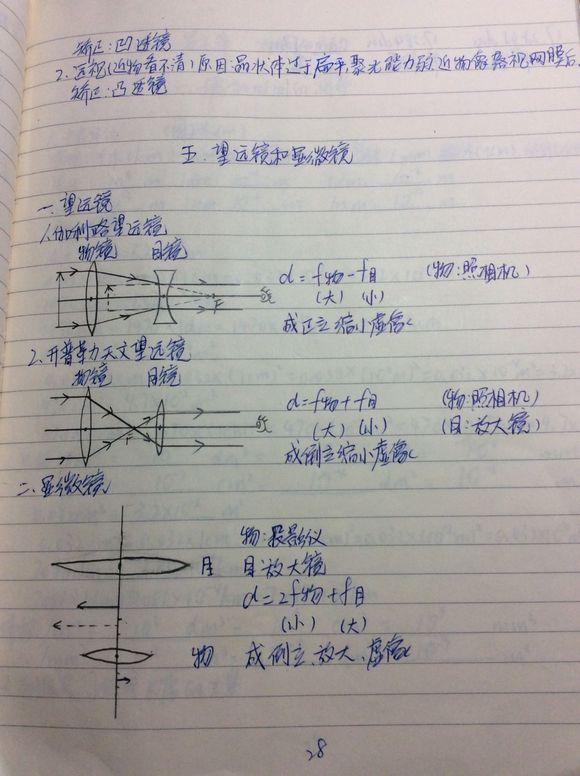 矫正:凹透镜
2.远视(近物看不清)原因:晶状体过于扁平,聚光能力弱,近物像落视网膜后.
矫正:凸透镜
五.望远镜和显微镜
一.望远镜
1.伽利略望远镜
物镜 目镜
d=f物-f目 (物:照相机)
(大) (小)
F
成正立缩小虚像
2.开普勒天文望远镜
物镜 目镜
d=f物+f目 (物:照相机)
(大) (小) (目:放大镜)
F
成倒立缩小虚像
二.显微镜
物:投影仪
目 目:放大镜
d=2f物+f目
(小) (大)
物 成倒立、放大、虚像
28